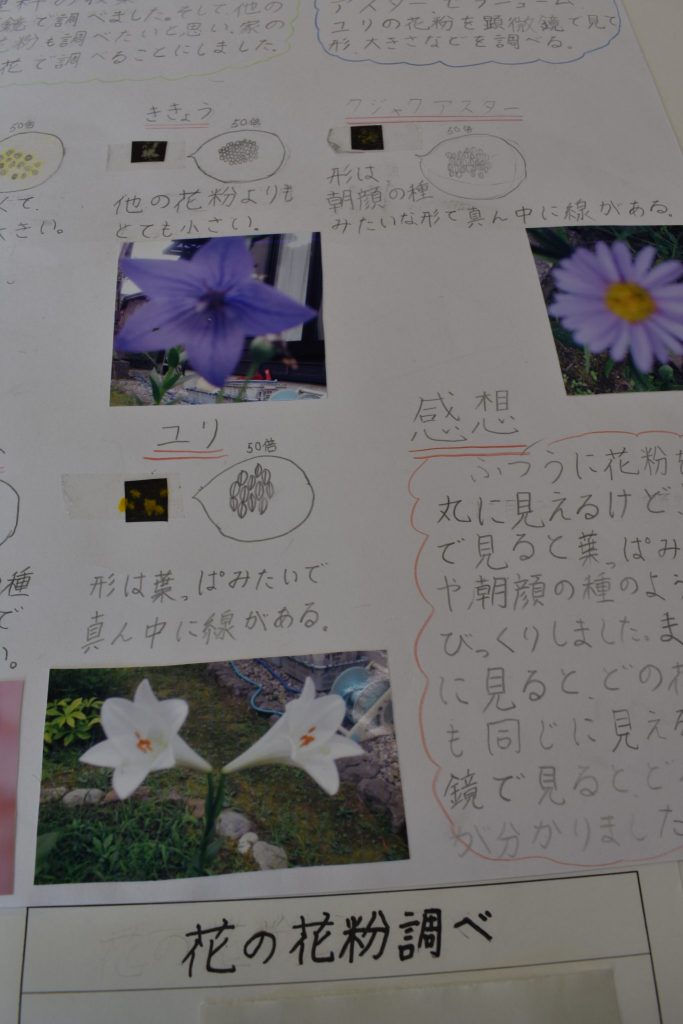 鏡で調べました。そして、他の
花粉も調べたいと思い、家の
花で調べることにしました。
ユリの花粉を顕微鏡で見て
形、大きさなどを調べる。
50倍
ききょう
50倍
他の花粉よりも
とても小さい。
クジャクアスター
50倍
形は
朝顔の種
みたいな形で真ん中に線がある。
くて、
大きい。
ユリ
50倍
形は葉っぱみたいで
真ん中に線がある。
の種
で
い。
感想
ふつうに花粉を
丸に見えるけど、
で見ると葉っぱみ
や朝顔の種のよう
びっくりしました。ま
に見ると、どの花
も同じに見える
鏡で見るとど
が分かりました
花の花粉調べ